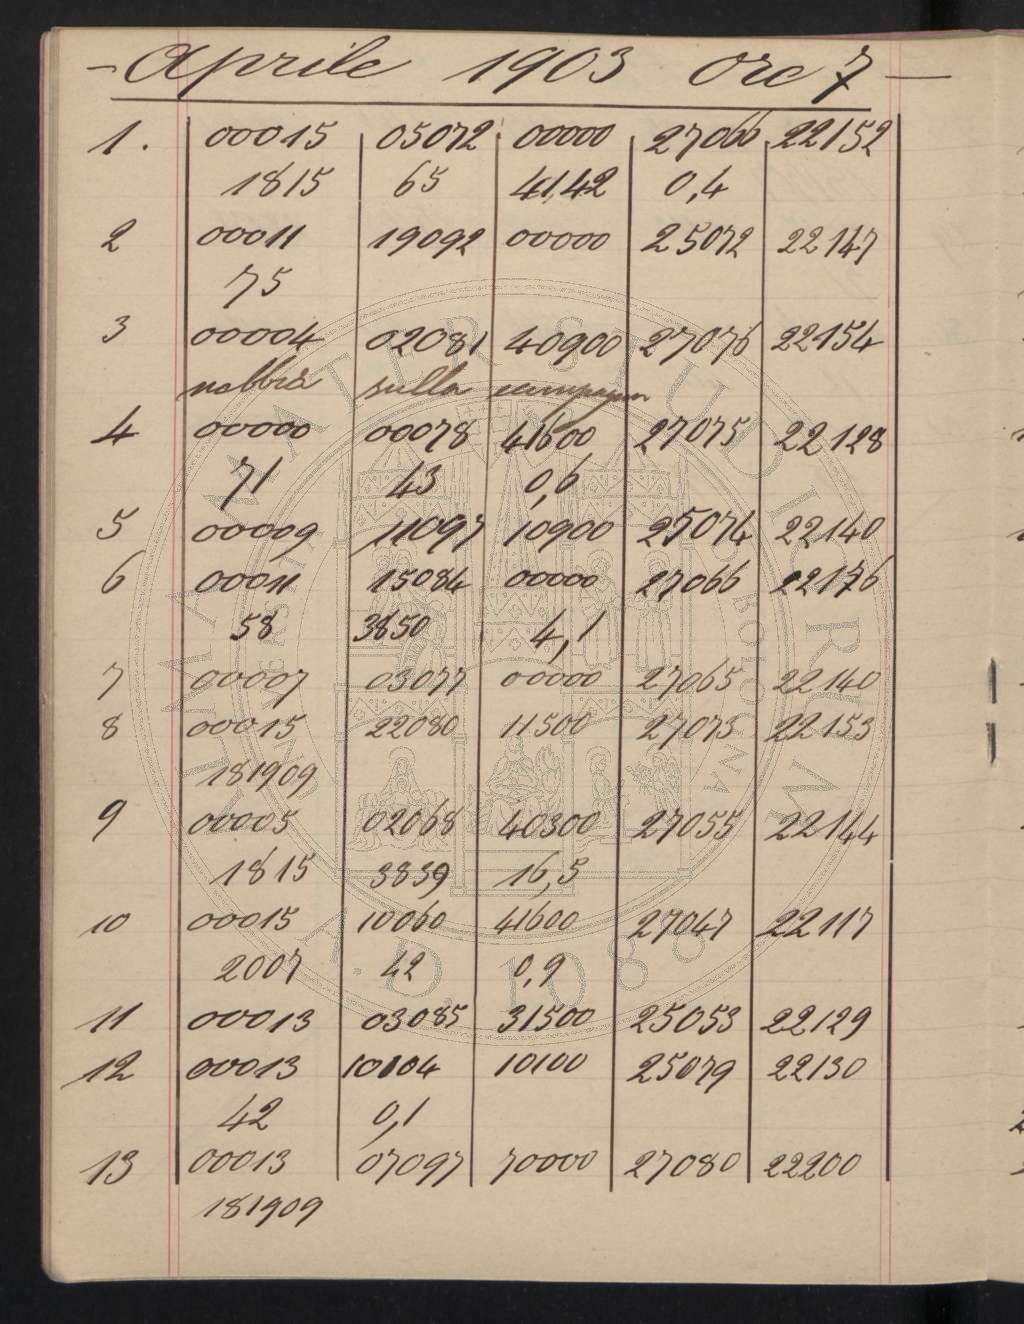 - Aprile 1903 Ore 7 -
1. 00015 05072 00000 27066 22152
1815 65 41,42 0,4
2 00011 19092 00000 25072 22147
75
3 00004 02081 40900 27076 22154
nebbia sulla campagna
4 00000 00078 41600 27075 22128
71 43 0,6
5 00009 11097 10900 25074 22140
6 00011 15084 00000 27066 22176
58 3850 4,1
7 00007 03077 00000 27065 22140
8 00015 22080 11500 27073 22153
181909
9 00005 02068 40300 27055 22144
1815 3839 16,5
10 00015 10060 41600 27047 22117
2007 42 0,9
11 00013 03085 31500 25053 22129
12 00013 10104 10100 25079 22130
42 0,1
13 00013 07097 70000 27080 22200
181909
ALMA MATER STUDIORUM
A.D. 1088